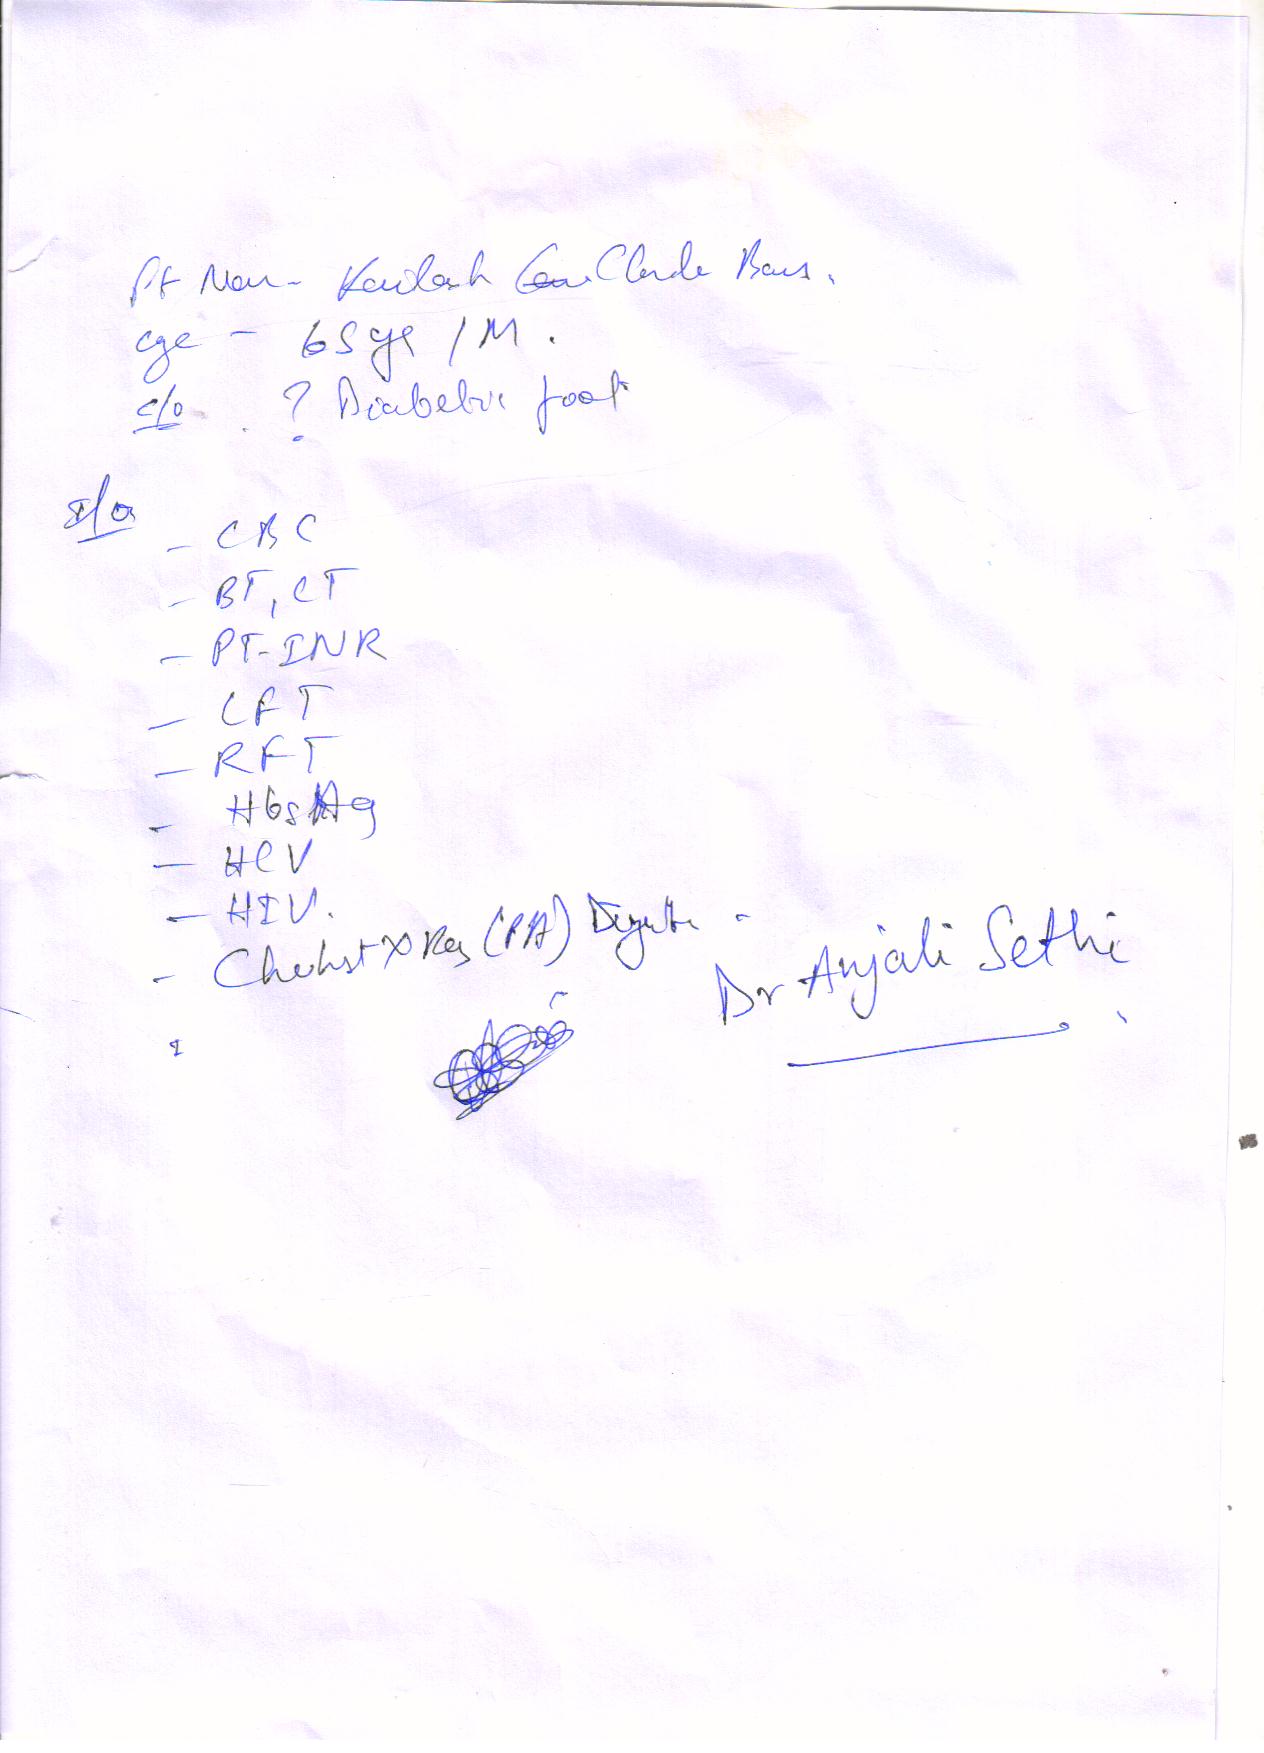 Pt Nam - Kailash Chande Bans.
age - 65 yr / M.
c/o ? Diabetic foot
I/o
- CBC
- BT, CT
- PT-INR
- LFT
- RFT
- HbsAg
- HCV
- HIV.
- Chest X Ray (PA)
Dr Anjali Sethi